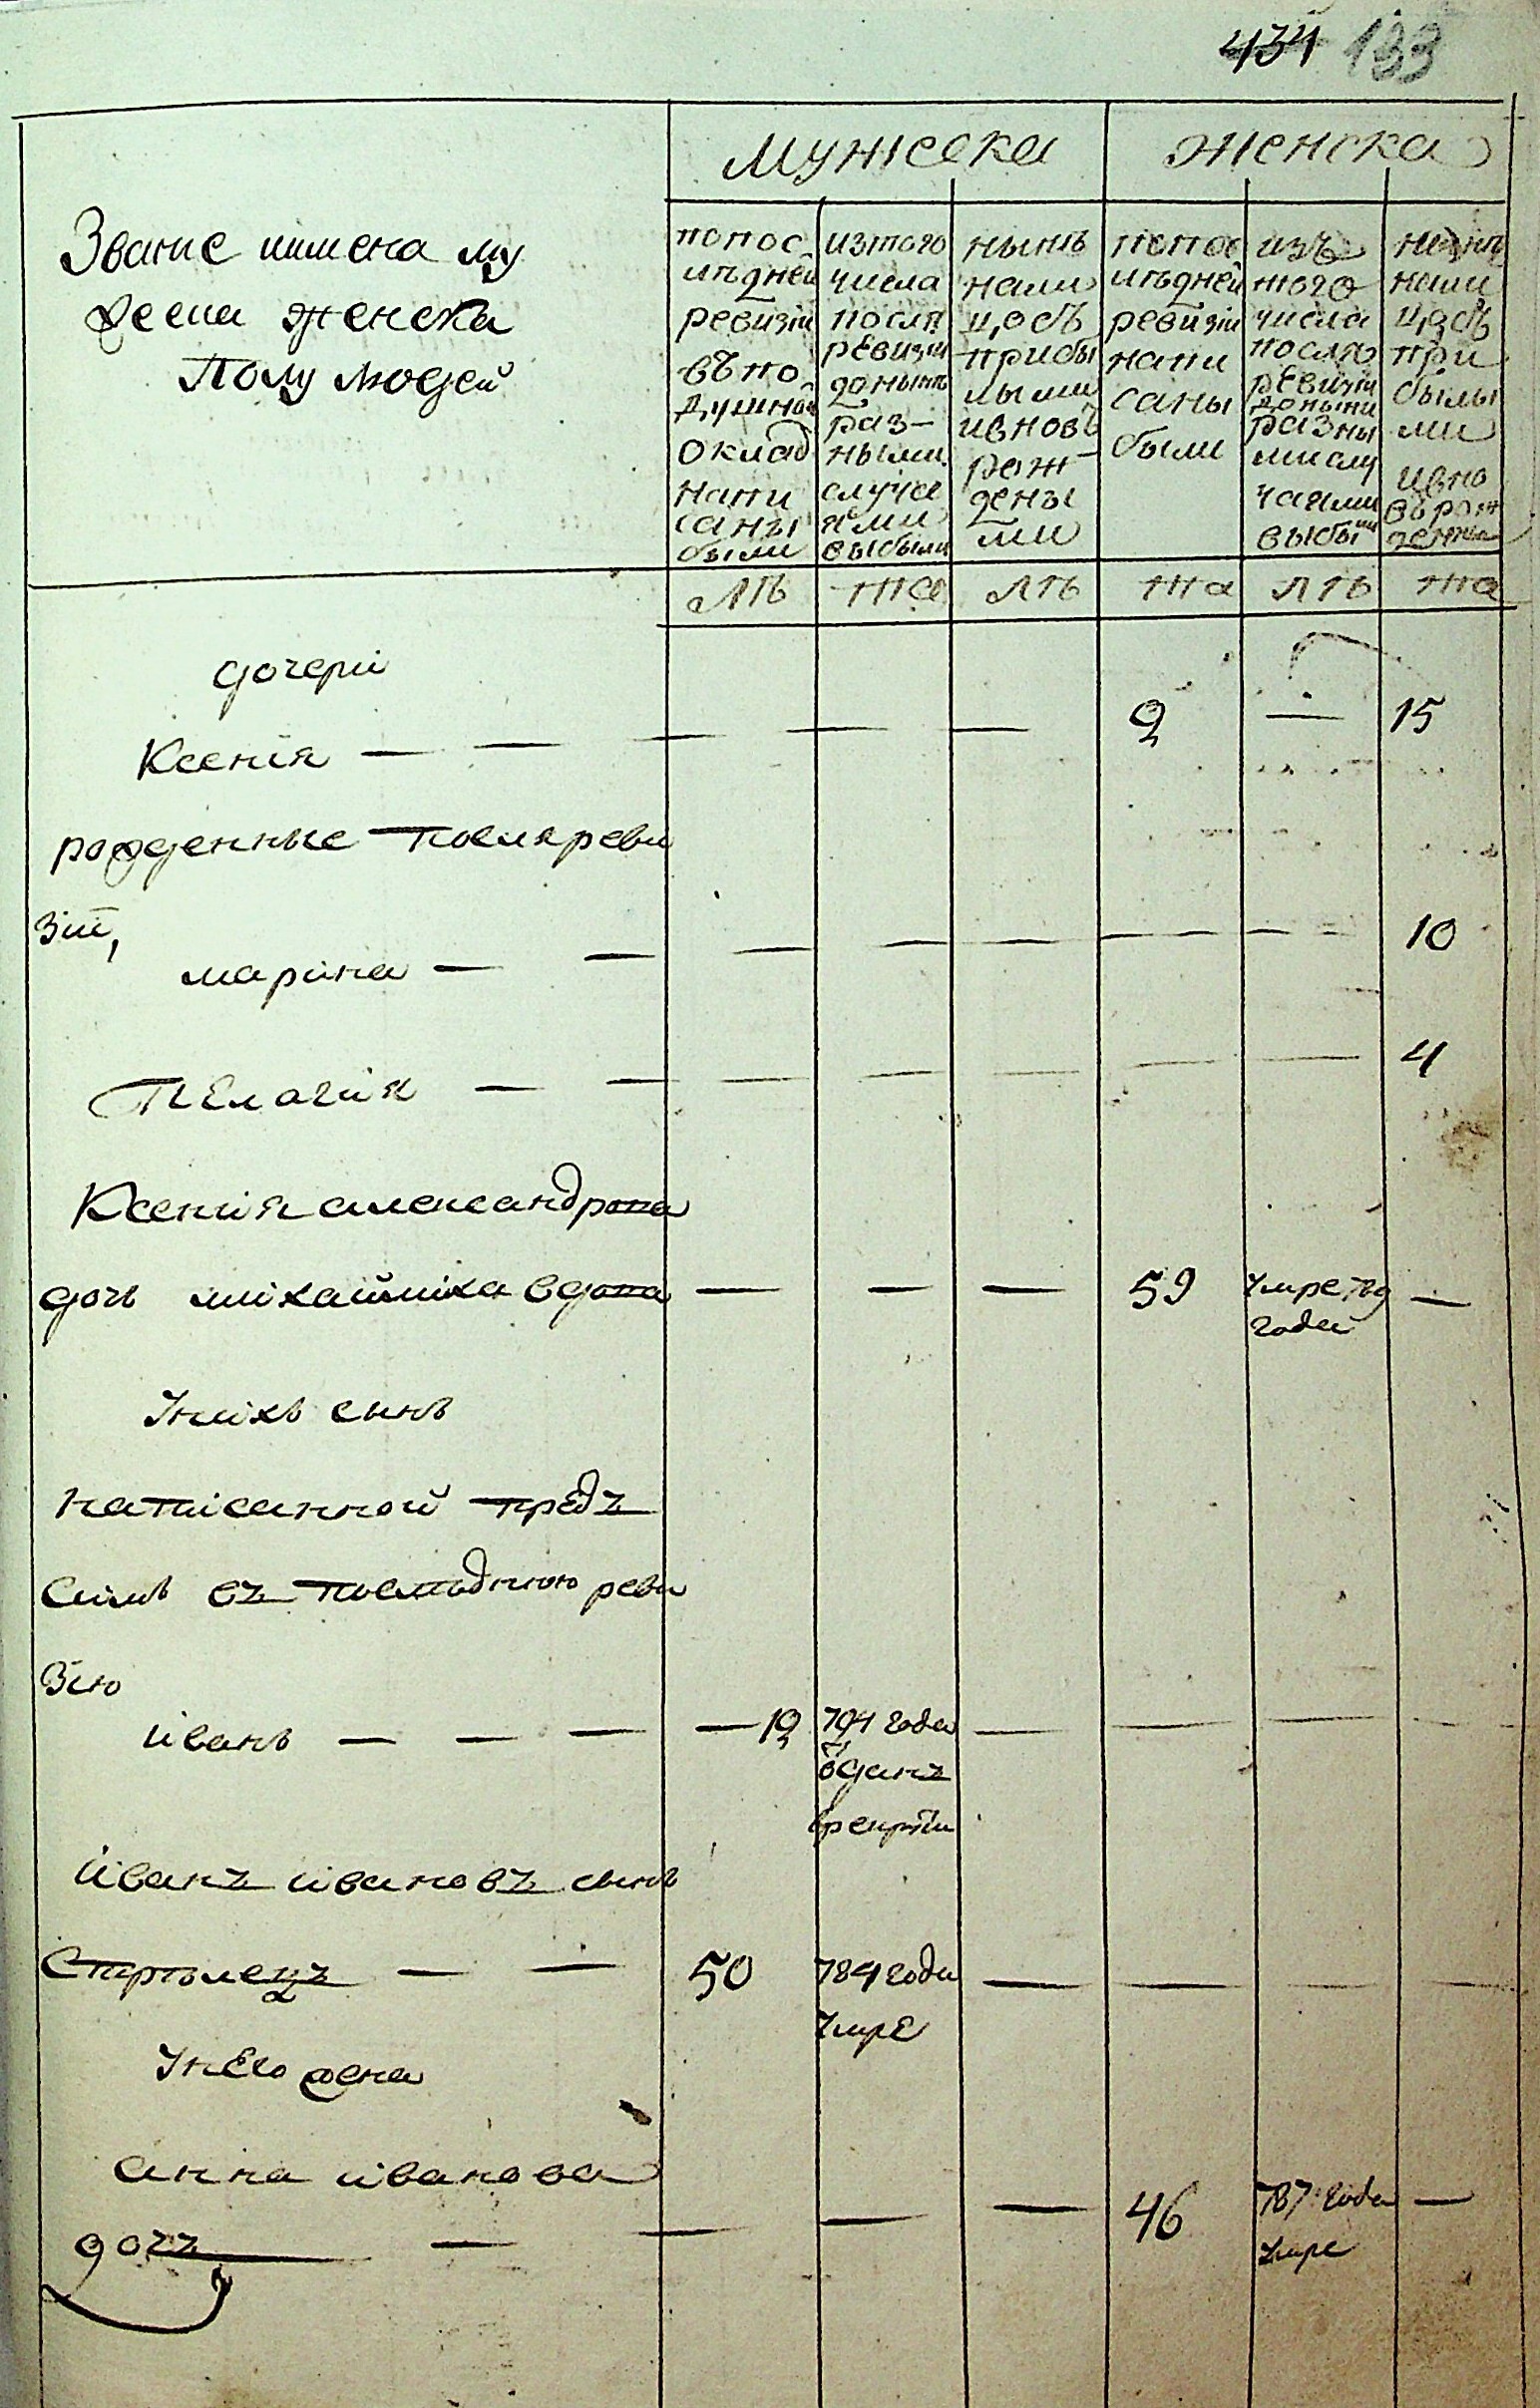 434 133
Мужеска Женска
Звание иимена му
жеска женска
Полу людей
попос
лѣдней
ревизіи
въпо
душной
оклад
напи
саны
были
изтого
числа
послѣ
ревизіи
донынѣ
раз-
ными
случа
ями
выбыли
нынѣ
нали
цобъ
прибы
лыми
ивновь
рож-
дены
ми
попос
лѣдней
ревизіи
напи
саны
были
изъ
того
числа
послѣ
ревизіи
донынѣ
разны
мислу
чаями
выбыли
нынѣ
нали
цобъ
при
былы
ми
ивно
ворож
денны
лѣ та лѣ та лѣ та
дочери
Ксенія — — — — — 9 — 15
рожденные послѣреви
зіи,
марина — — — — — — — 10
Пелагия — — — — — — — 4
Ксения александрова
дочь михайлиха вдова — — — 59 —
умре
года
Унихъ сынъ
написанной предъ
симъ въ последнюю реви
зию
иванъ — — — — 19 794 года — — — —
одданъ
врекруты
иванъ ивановъ сынъ
Стрѣлецъ — — 50 784 года — — — —
умре
Унего жена
анна иванова
дочъ — — — — 46 787 года —
умре